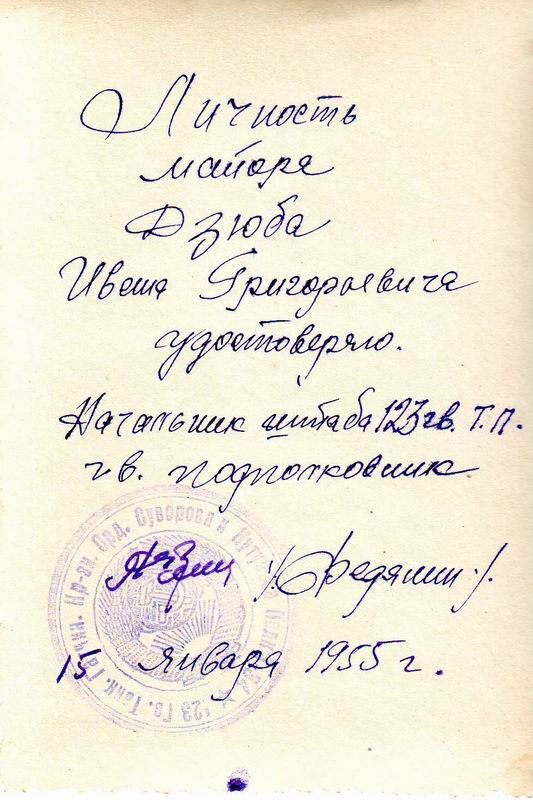 Личность
майора
Дзюба
Ивана Григорьевича
удостоверяю.
Начальник штаба 123 гв. т.п.
гв. подполковник
/Федянин/.
15 января 1955 г.
123 Гв. Танк. Гатчин. Кр-зн. Орд. Суворова и